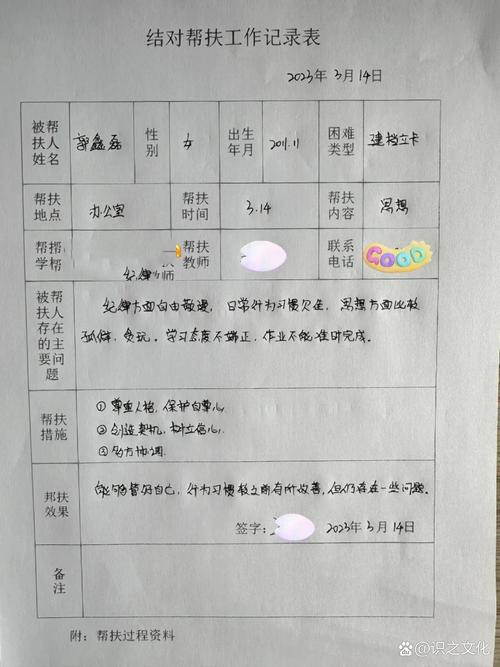 结对帮扶工作记录表
2023年3月14日
被帮扶人姓名 郭鑫磊 性别 女 出生年月 2011.11 困难类型 建档立卡
帮扶地点 办公室 帮扶时间 3.14 帮扶内容 思想
学帮 纪律 师 帮扶教师 联系电话 GOOD
被帮扶人存在的主要问题
纪律方面自由散漫,日常行为习惯欠佳,思想方面比较
孤僻,贪玩。学习态度不端正,作业不能准时完成。
帮扶措施
①尊重人格,保护自尊心。
②创造契机,树立信心。
③多方协调。
邦扶效果
能够管好自己,行为习惯较之前有所改善,但仍存在一些问题。
签字: 2023年3月14日
备注
附:帮扶过程资料
识之文化